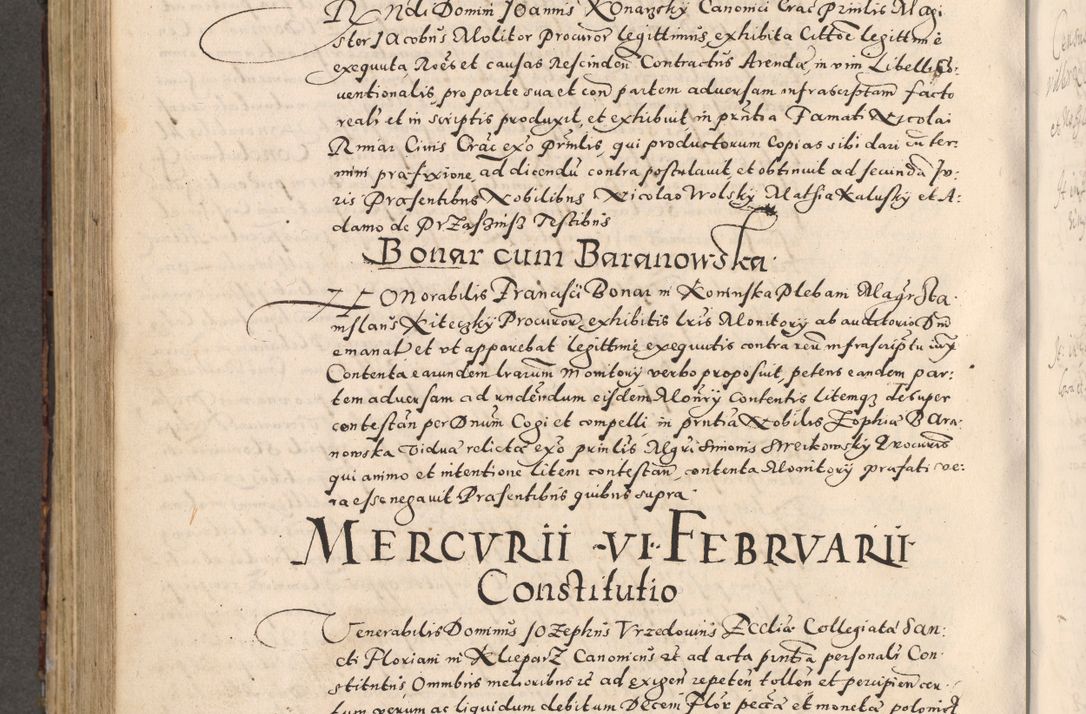 Rndi Domini Joannis Konarzky Canonici Crac Prntis Magi
ster Jacobus Molitor Procuror legittimus, exhibita Cittōe legittime
exequuta Nōes et causas Rescindeñ Contractus Arendæ, in vim Libelli Co:
uentionalis, pro parte sua et coñ partem aduersam infrascriptam facto
reali et in scriptis produxit, et exhibuit in prñtia Famati Nicolai
Rimar Ciuis Crac exõ Prñtis, qui productorum Copias sibi dari cũ ter:
mini præfixione, ad dicendũ contra postulauit, et obtinuit ad secundã Ju:
ris Præsentibus Nobilibus Nicolao Wolsky Mathia Kalusky et A:
damo de Testibus
Bonar cum Baranowska
Honorabilis Francisci Bonar in Plebani Magr Sta
nislaus Kiteczky Procuror, exhibitis Lrīs Monitorÿ ab auditorio
emanat et vt apparebat legittime exequutis contra reũ infrascriptũ
Contenta earundem Lrarum Monitorÿ verbo proposuit, petens eandem par:
tem aduersam ad eisdem Contentis litemqz desuper
contestañ per Dñum Cogi et compelli in prñtia Nobilis Zophiæ Bara
nowska Vidua relicta exõ prñtis Mgri Simonis Procuroris
qui animo et intentione litem contestañ, contenta Monitorÿ præfati ve:
ra esse negauit Præsentibus quibus supra
MERCVRII ·VI· FEBRVARII
Constitutio
Venerabilis Dominus Jozephus Vrzedouius Ecclīæ Collegiatæ San:
cti Floriani in Kleparz Canonicus &c ad acta prñtia personalr Con
stitutus, Omnibus melioribus &c ad exigeñ repeteñ tolleñ et percipieñ cer
tum verum ac liquidum debitum Decem Flor peccæ et monetæ polonicæ